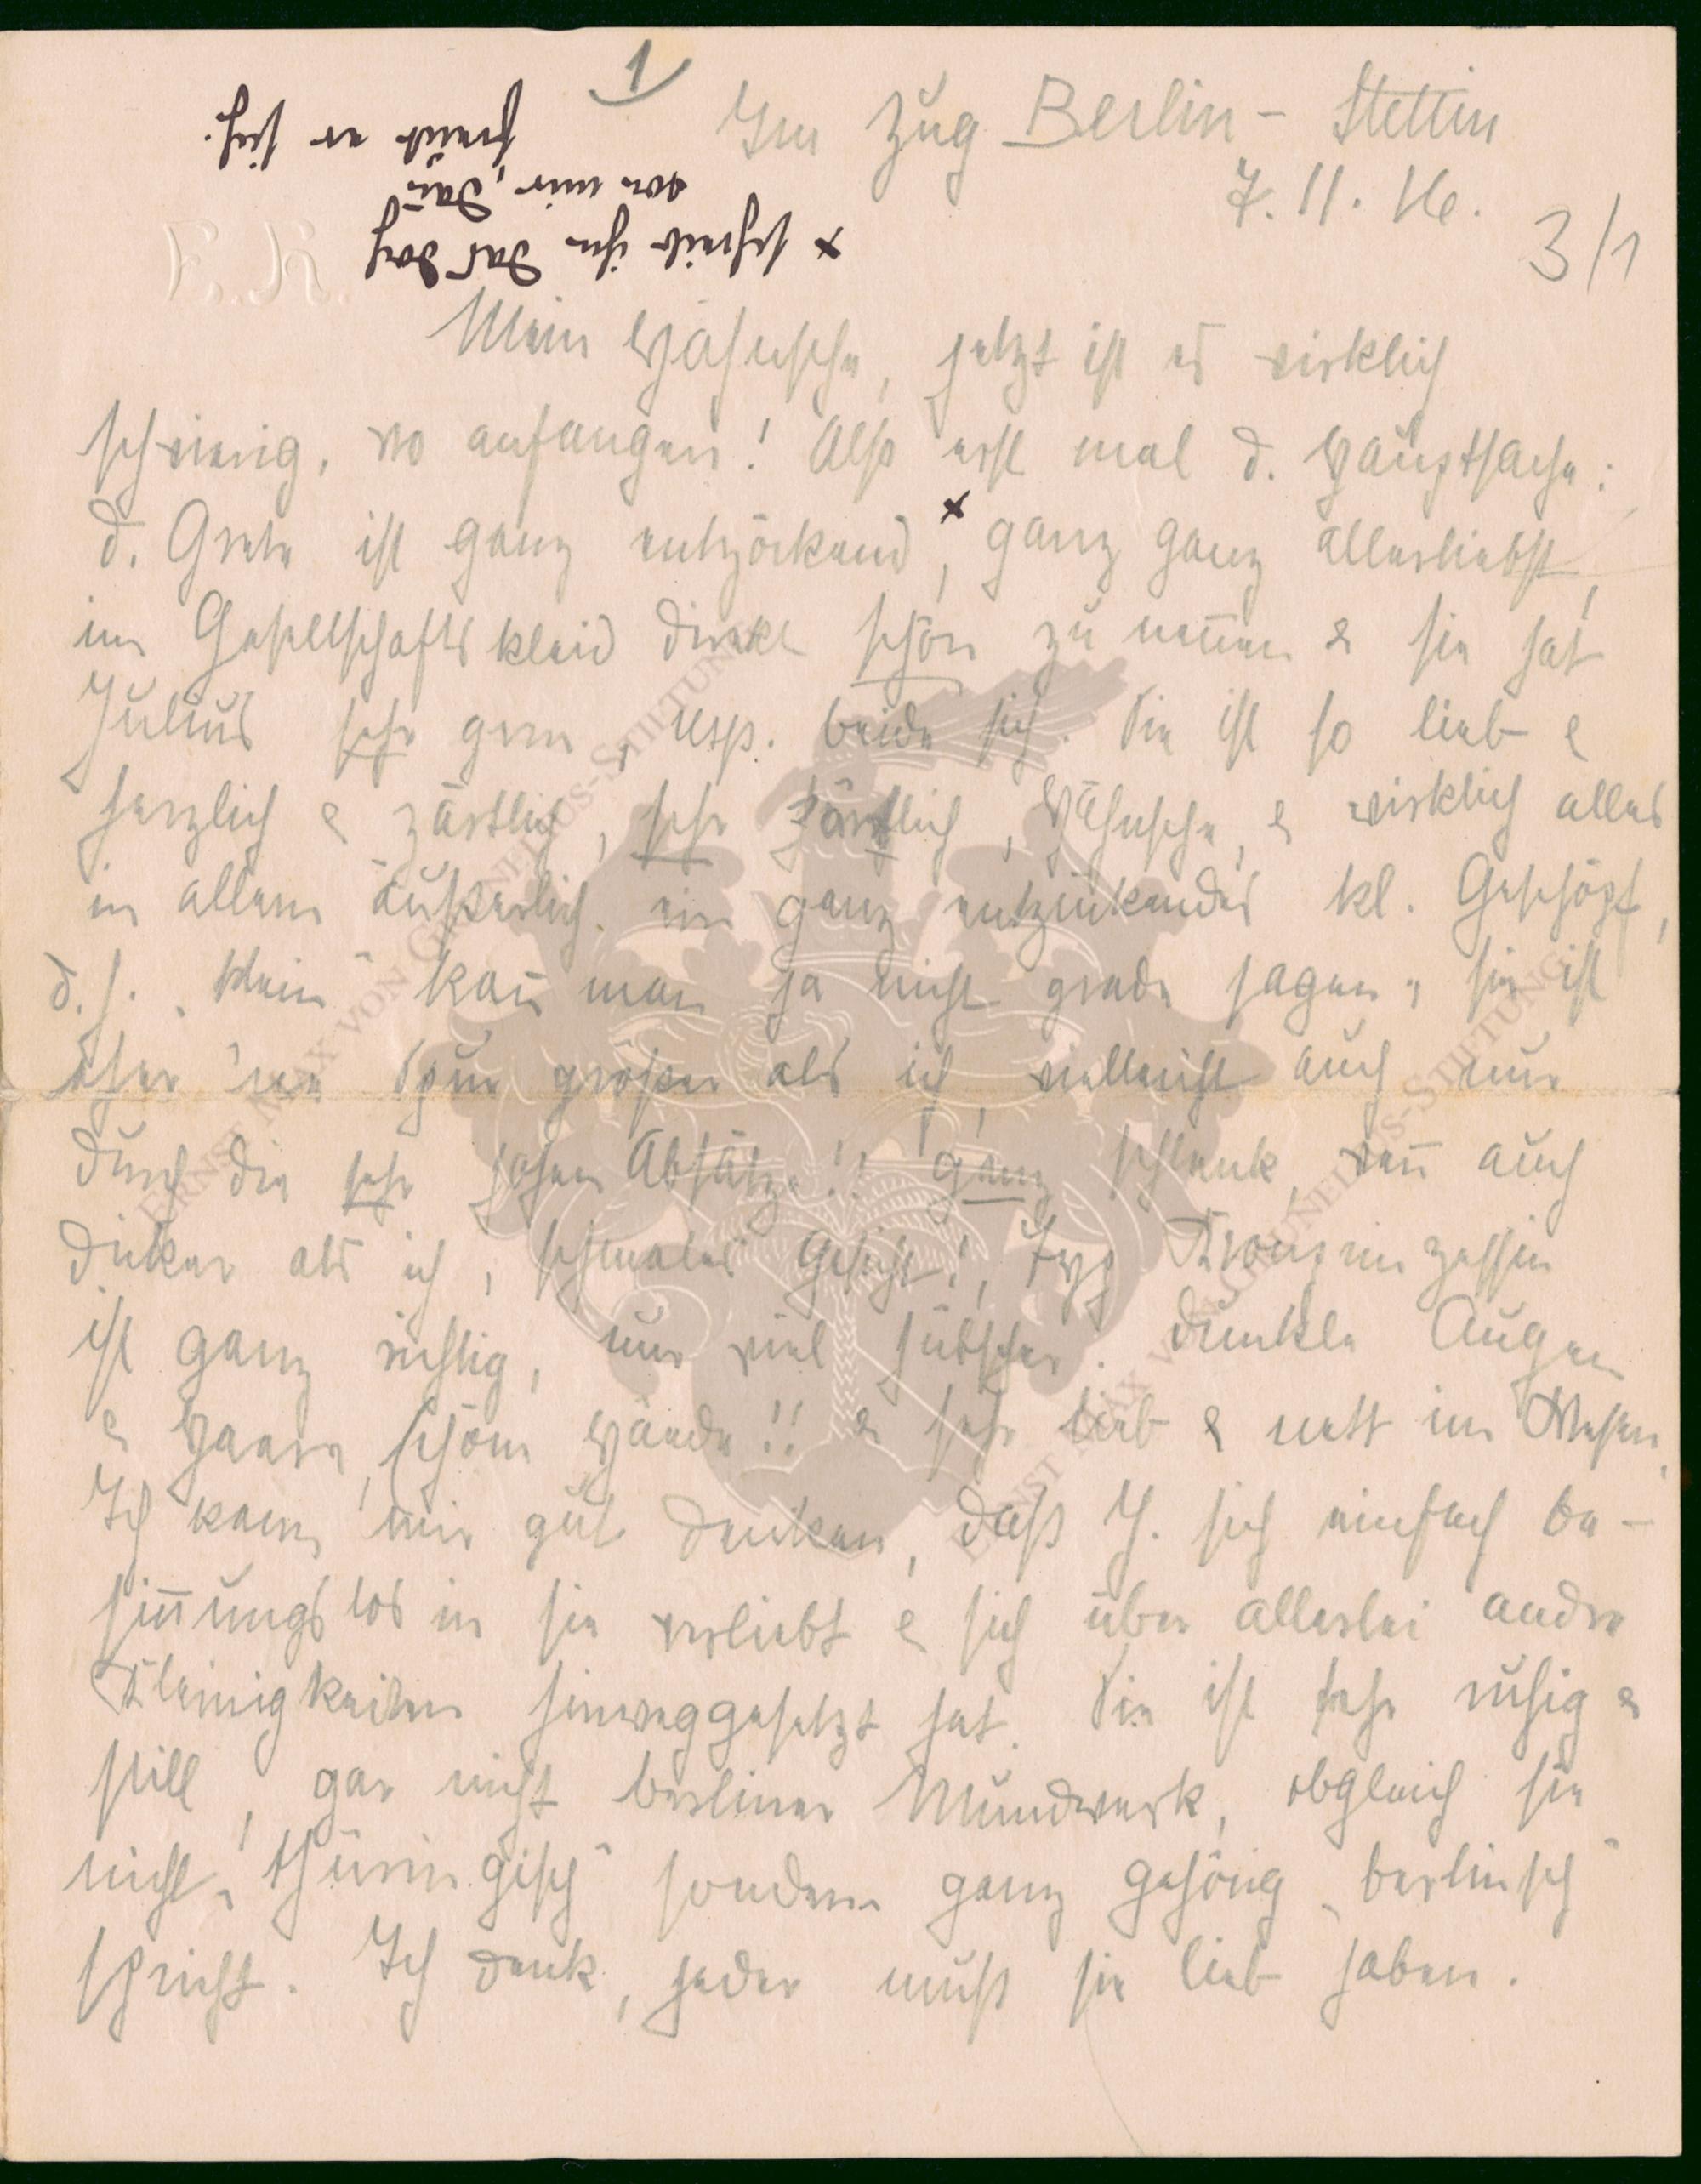 1
Im Zug Berlin - Stettin
7. 11. 16.
3/1
x schreib ihm das doch
von mir, dañ
freut er sich.
E. K.
Mein Hähnsche, jetzt ist es wirklich
schwierig, wo anfangen! Also erst mal d. Hauptsache:
d. Grete ist ganz entzückend x, ganz ganz allerliebst,
im Gesellschaftskleid direkt schön zu neñen & sie hat
Julius sehr gern, resp. beide sich. Sie ist so lieb &
herzlich & zärtlich, sehr zärtlich, Hähnsche, & wirklich alles
in allem äußerlich ein ganz entzückendes kl. Geschöpf,
d. h. „klein" kañ man ja nicht grade sagen, sie ist
eher 'ne Spur größer als ich, vielleicht auch nur
durch die sehr hohen Absätze!! ganz schlank, weñ auch
dicker als ich, schmales Gesicht!, Typ Kronprinzessin
ist ganz richtig, nur viel hübscher. Dunkle Augen
& Haare, schöne Hände!! & sehr lieb & nett im Wesen.
Ich kann mir gut denken, daß J. sich einfach be-
siñungslos in sie verliebt & sich über allerlei andre
Kleinigkeiten hinweggesetzt hat. Sie ist sehr ruhig &
still, gar nicht berliner Mundwerk, obgleich sie
nicht „thüringisch" sondern ganz gehörig „berlinsch"
spricht. Ich denk, jeder muß sie lieb haben.
ERNST MAX VON GRUNELIUS-STIFTUNG
ERNST MAX VON GRUNELIUS-STIFTUNG